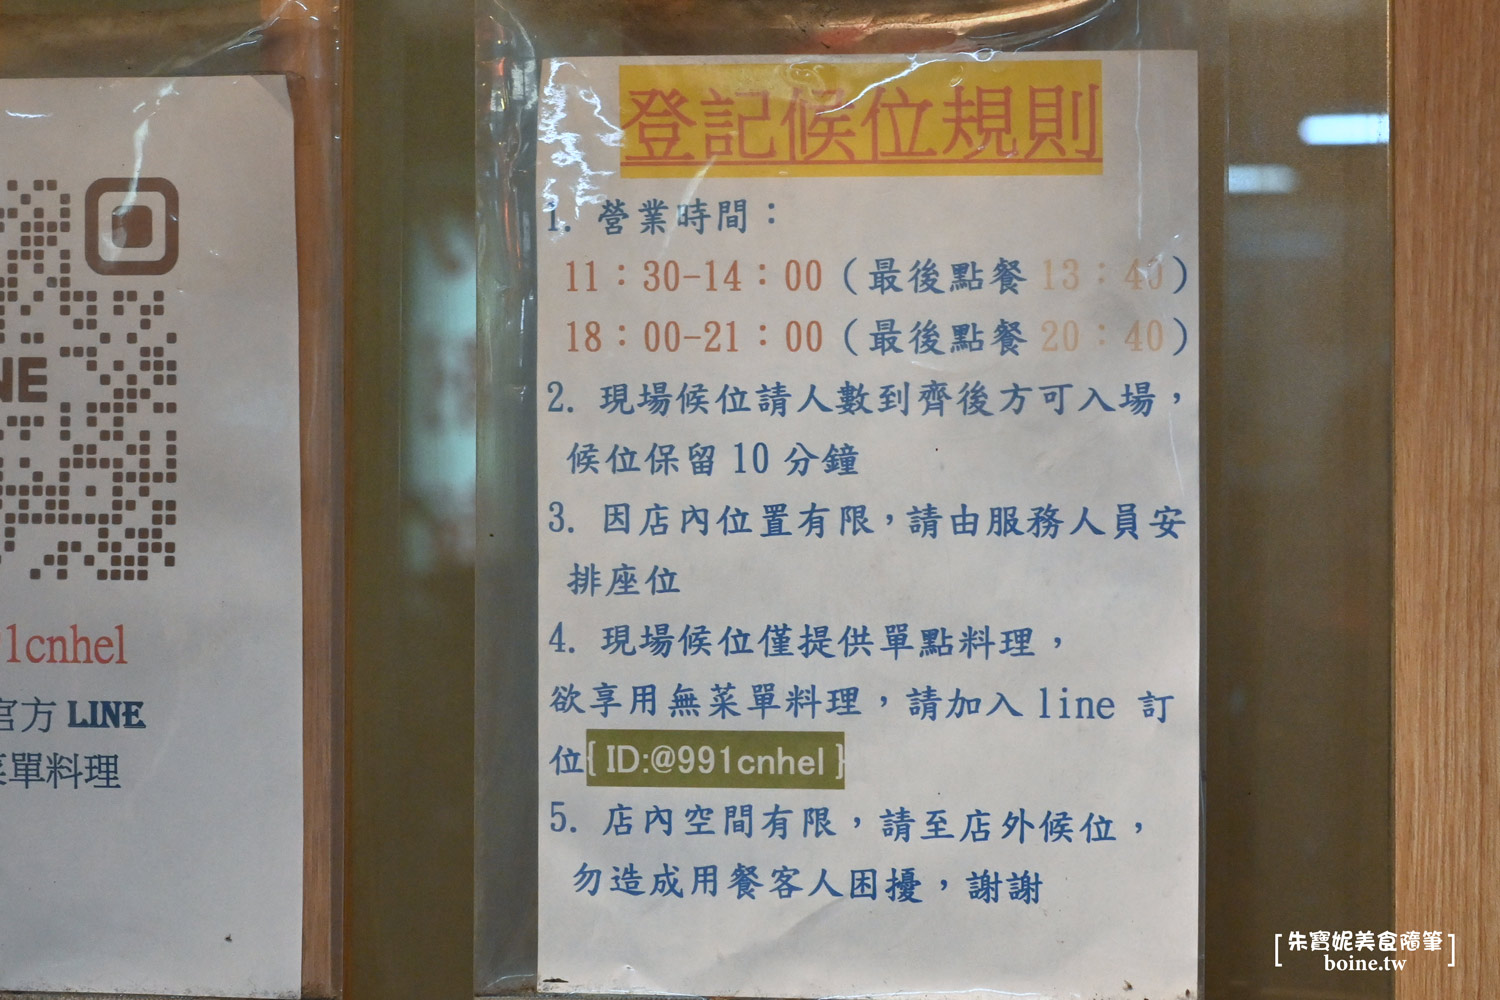 NE
1cnhel
官方 LINE
菜單料理
登記候位規則
1. 營業時間：
11：30-14：00（最後點餐 13：40）
18：00-21：00（最後點餐 20：40）
2. 現場候位請人數到齊後方可入場，
候位保留 10 分鐘
3. 因店內位置有限，請由服務人員安
排座位
4. 現場候位僅提供單點料理，
欲享用無菜單料理，請加入 line 訂
位{ ID:@991cnhel }
5. 店內空間有限，請至店外候位，
勿造成用餐客人困擾，謝謝
[ 朱寶妮美食隨筆 ]
boine.tw